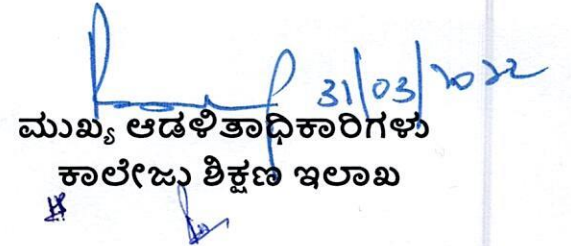 31/03/2022
ಮುಖ್ಯ ಆಡಳಿತಾಧಿಕಾರಿಗಳು
ಕಾಲೇಜು ಶಿಕ್ಷಣ ಇಲಾಖೆ